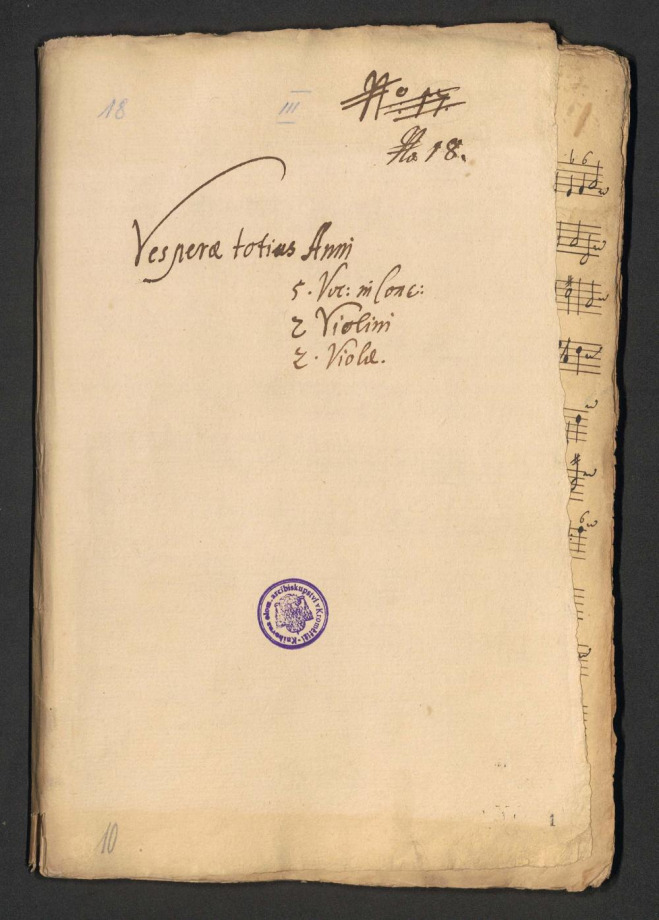 18
III
No 17.
No 18.
Vesperæ totius Anni
5. Voc: in Conc:
2 Violini
2. Violæ.
Knihovna arcibiskupství v Kroměříži
1
10